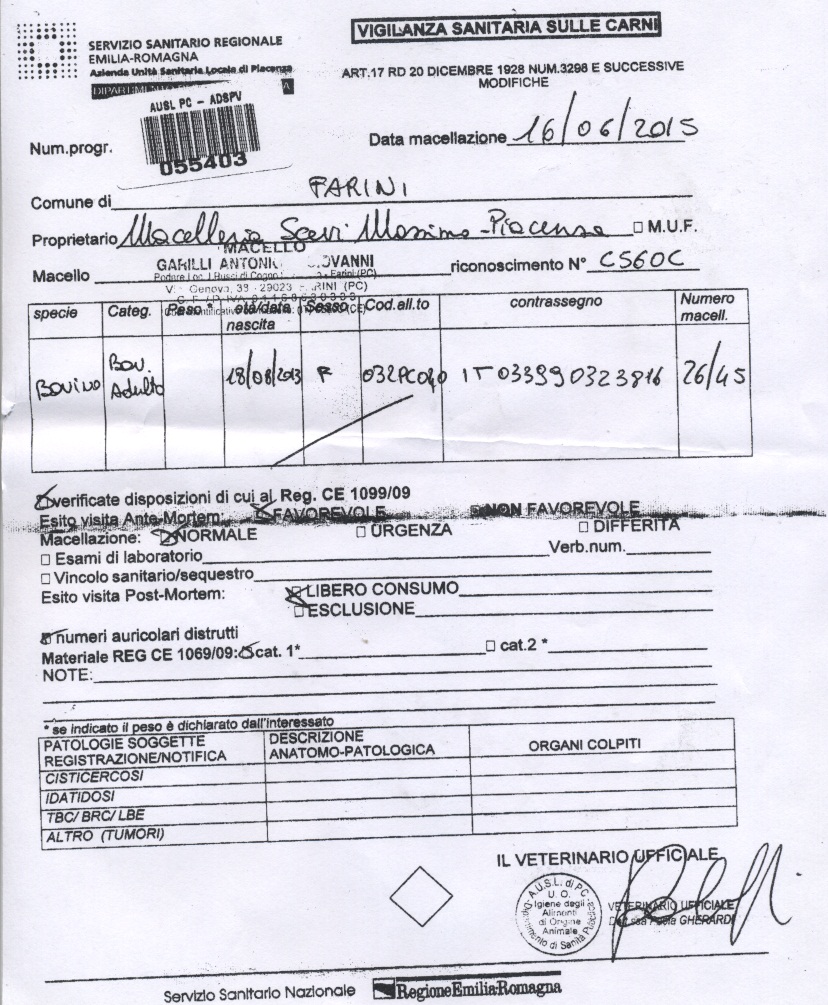 VIGILANZA SANITARIA SULLE CARNI
SERVIZIO SANITARIO REGIONALE
EMILIA-ROMAGNA
Azienda Unità Sanitaria Locale di Piacenza
ART.17 RD 20 DICEMBRE 1928 NUM.3298 E SUCCESSIVE
MODIFICHE
AUSL PC - ADSPV
055403
Num.progr.
Data macellazione 16/06/2015
Comune di FARINI
Proprietario Macelleria Massimo - Piacenza □ M.U.F.
MACELLO
Macello GARILLI ANTONIO GIOVANNI riconoscimento N° C560C
V. Genova, 33 - 29023 FARINI (PC)
specie Categ. Peso * età/data nascita Sesso Cod.all.to contrassegno Numero macell.
Bovino Bov. Adulto 18/08/2013 F 032PC040 IT033990323816 26/45
verificate disposizioni di cui al Reg. CE 1099/09
Esito visita Ante-Mortem: FAVOREVOLE NON FAVOREVOLE
Macellazione: NORMALE □ URGENZA □ DIFFERITA
□ Esami di laboratorio Verb.num.
□ Vincolo sanitario/sequestro
Esito visita Post-Mortem: LIBERO CONSUMO
□ ESCLUSIONE
numeri auricolari distrutti
Materiale REG CE 1069/09: cat. 1* □ cat.2 *
NOTE:
* se indicato il peso è dichiarato dall'interessato
PATOLOGIE SOGGETTE REGISTRAZIONE/NOTIFICA DESCRIZIONE ANATOMO-PATOLOGICA ORGANI COLPITI
CISTICERCOSI
IDATIDOSI
TBC/ BRC/ LBE
ALTRO (TUMORI)
IL VETERINARIO UFFICIALE
A.U.S.L. di PC
U. O.
Igiene degli
Alimenti
di Origine
Animale
Dipartimento di Sanità Pubblica
VETERINARIO UFFICIALE
Dott.ssa Paola GHERARDI
Servizio Sanitario Nazionale RegioneEmilia-Romagna